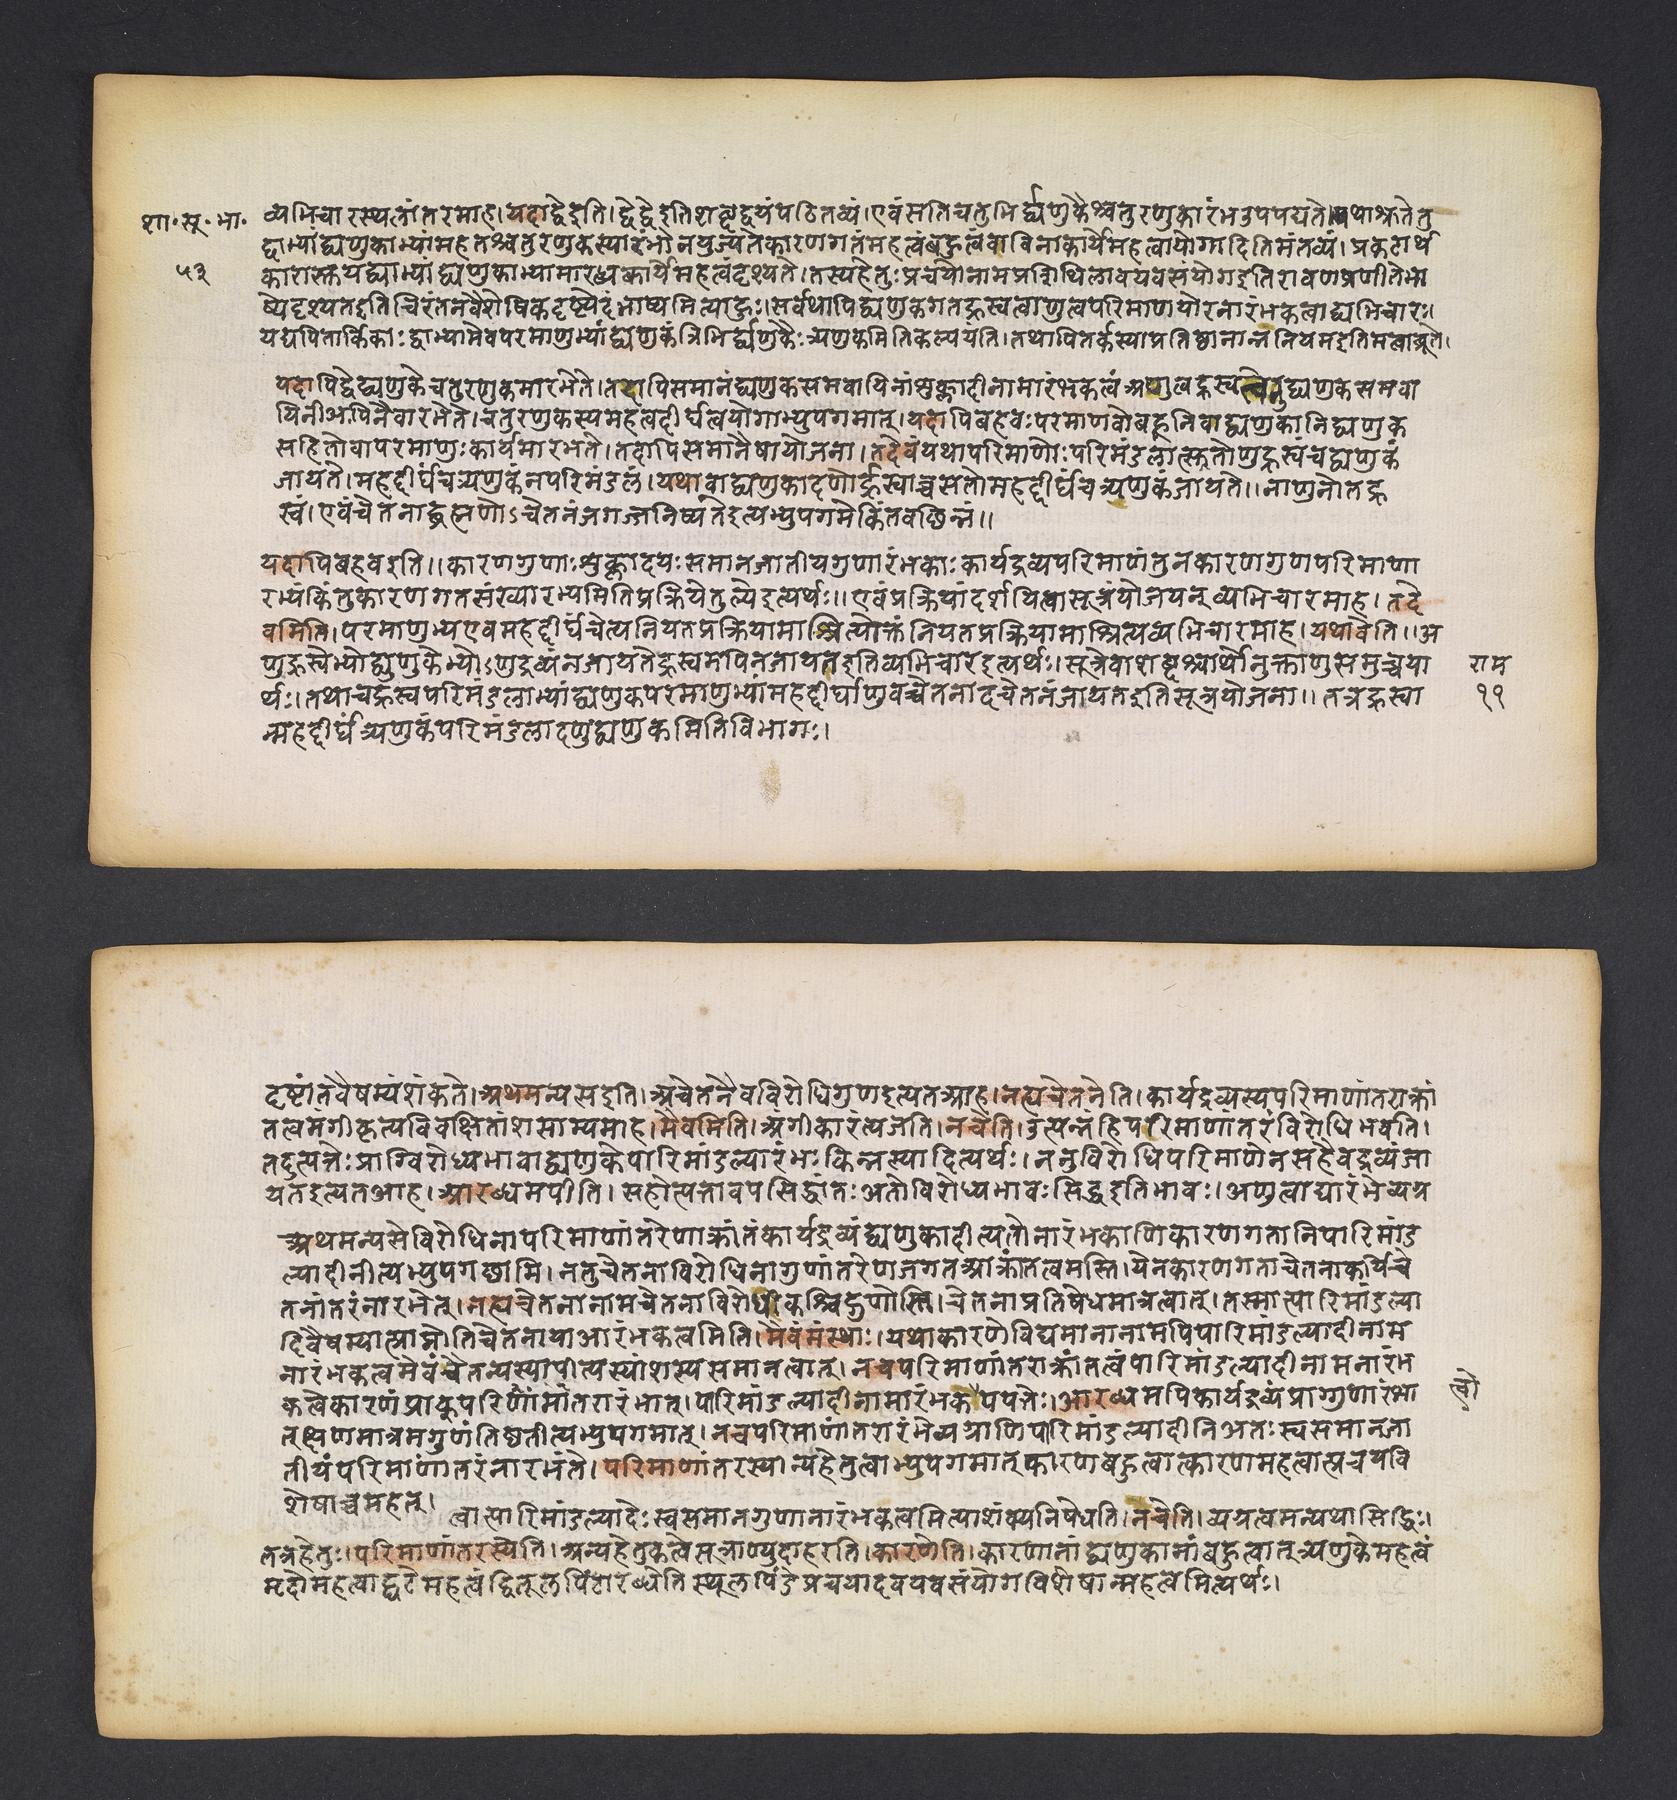 शा॰सू॰भा॰
५३
व्यभिचारस्थलांतरमाह।यदाद्वेइति।द्वेद्वेइतिशब्दद्वयंपठितव्यं।एवंसतिचतुर्भिर्द्व्यणुकैश्चतुरणुकारंभउपपद्यते।यथाश्रुतेतु
द्वाभ्यांद्व्यणुकाभ्यांमहतश्चतुरणुकस्यारंभोनयुज्यतेकारणगतंमहत्वंबहुत्वंवाविनाकार्येमहत्वायोगादितिमंतव्यं।प्रकटार्थ
कारास्तुयद्द्वाभ्यांद्व्यणुकाभ्यामारब्धकार्येमहत्वंदृश्यते।तस्यहेतुःप्रचयोनामप्रशिथिलावयवसंयोगइतिरावणप्रणीतेभा
ष्येदृश्यतइतिचिरंतनवैशेषिकदृष्ट्येदंभाष्यमित्याहुः।सर्वथापिद्व्यणुकगतह्रस्वत्वाणुत्वपरिमाणयोरनारंभकत्वाद्व्यभिचारः।
यद्यपितार्किकाःद्वाभ्यामेवपरमाणुभ्यांद्व्यणुकंत्रिभिर्द्व्यणुकैःत्र्यणुकमितिकल्पयंति।तथापितर्कस्याप्रतिष्ठानान्ननियमइतिमत्वाब्रूते।
यदापिद्वेद्व्यणुकेचतुरणुकमारभेते।तदापिसमानंद्व्यणुकसमवायिनांशुक्लादीनामारंभकत्वंअणुत्वह्रस्वत्वेतुद्व्यणुकसमवा
यिनीअपिनैवारभेते।चतुरणुकस्यमहत्वदीर्घत्वयोगाभ्युपगमात्।यदापिबहवःपरमाणवोबहूनिवाद्व्यणुकानिद्व्यणुक
सहितोवापरमाणुःकार्यमारभते।तदापिसमानैषायोजना।तदेवंयथापरिमाणोःपरिमंडलात्सतोणुह्रस्वंचद्व्यणुकं
जायते।महद्दीर्घंचत्र्यणुकंनपरिमंडलं।यथावाद्व्यणुकादणोर्ह्रस्वाच्चसतोमहद्दीर्घंचत्र्यणुकंजायते॥नाणुनोतह्र
स्वं।एवंचेतनाद्ब्रह्मणोऽचेतनंजगज्जनिष्यतेइत्यभ्युपगमेकिंतवछिन्नं॥
यदापिबहवइति॥कारणगुणाःशुक्लादयःसमानजातीयगुणारंभकाःकार्यद्रव्यपरिमाणंतुनकारणगुणपरिमाणा
रभ्यंकिंतुकारणगतसंख्यारभ्यमितिप्रक्रियेतुल्येइत्यर्थः॥एवंप्रक्रियांदर्शयित्वासूत्रंयोजयन्व्यभिचारमाह।तदे
वमिति।परमाणुभ्यएवमहद्दीर्घंचेत्यनियतप्रक्रियामाश्रित्योक्तंनियतप्रक्रियामाश्रित्यव्यभिचारमाह।यथावेति॥अ
णुह्रस्वेभ्योद्व्यणुकेभ्योऽणुद्रव्यंनजायतेह्रस्वमपिनजायतइतिव्यभिचारइत्यर्थः।सूत्रेवाशब्दश्चार्थोनुक्ताणुसमुच्चया
र्थः।तथाचह्रस्वपरिमंडलाभ्यांद्व्यणुकपरमाणुभ्यांमहद्दीर्घाणुवच्चेतनादचेतनंजायतइतिसूत्रयोजना॥तत्रह्रस्वा
न्महद्दीर्घंत्र्यणुकंपरिमंडलादणुद्व्यणुकमितिविभागः।
राम
११
दृष्टांतवैषम्यंशंकते।अथमन्यसइति।अचेतनैवविरोधिगुणइत्यतआह।नह्यचेतनेति।कार्यद्रव्यस्यपरिमाणांतराक्रां
तत्वमंगीकृत्यविवक्षितांशसाम्यमाह।मैवमिति।अंगीकारंत्यजति।नचेति।उत्पन्नंहिपरिमाणांतरंविरोधिभवति।
तदुत्पत्तेःप्राग्विरोध्यभावाद्व्यणुकेपारिमांडल्यारंभःकिंनस्यादित्यर्थः।ननुविरोधिपरिमाणेनसहैवद्रव्यंजा
यतइत्यतआह।आरब्धमपीति।सहोत्पत्तावपसिद्धांतःअतोविरोध्यभावःसिद्धइतिभावः।अणुत्वाद्यारंभेव्यग्र
अथमन्यसेविरोधिनापरिमाणांतरेणाक्रांतंकार्यद्रव्यंद्व्यणुकादीत्यतोनारंभकाणिकारणगतानिपारिमांड
ल्यादीनीत्यभ्युपगछामि।नतुचेतनाविरोधिनागुणांतरेणजगतआक्रांतत्वमस्ति।येनकारणगताचेतनाकार्येचे
तनांतरंनारभेत्।नह्यचेतनानामचेतनाविरोधीकश्चिद्गुणोस्ति।चेतनाप्रतिषेधमात्रत्वात्।तस्मात्पारिमांडल्या
दिवैषम्यात्प्राप्नोतिचेतनायाआरंभकत्वमिति।मैवंमंस्थाः।यथाकारणेविद्यमानानामपिपारिमांडल्यादीनाम
नारंभकत्वमेवंचैतन्यस्यापीत्यस्यांशस्यसमानत्वात्।नचपरिमाणांतराक्रांतत्वंपारिमांडल्यादीनामनारंभ
कत्वेकारणंप्राक्परिणामांतरारंभात्।पारिमांडल्यादीनामारंभकोपपत्तेः।आरब्धमपिकार्यद्रव्यंप्राग्गुणारंभा
त्वो
त्क्षणमात्रमगुणंतिष्ठतीत्यभ्युपगमात्।नचपरिमाणांतरारंभेव्यग्राणिपारिमांडल्यादीनिअतःस्वसमानजा
तीयंपरिमाणांतरंनारभंते।परिमाणांतरस्यान्यहेतुत्वाभ्युपगमात्कारणबहुत्वात्कारणमहत्वात्प्रचयवि
शेषाच्चमहत्।
त्वात्पारिमांडल्यादेःस्वसमानगुणानारंभकत्वमित्याशंक्यनिषेधति।नचेति।व्यग्रत्वमन्यथासिद्धिः।
तत्रहेतुः।परिमाणांतरस्येति।अन्यहेतुकत्वेसूत्राण्युदाहरति।कारणेति।कारणानांद्व्यणुकानांबहुत्वात्त्र्यणुकेमहत्वं
मृदोमहत्वाद्घटेमहत्वंद्वितूलपिंडारब्धेतिस्थूलपिंडेप्रचयादवयवसंयोगविशेषान्महत्वमित्यर्थः।